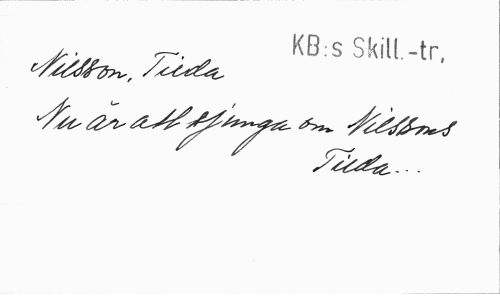 KB:s Skill.-tr,
Nilsson, Tilda
Nu är att sjunga om Nilssons
Tilda...